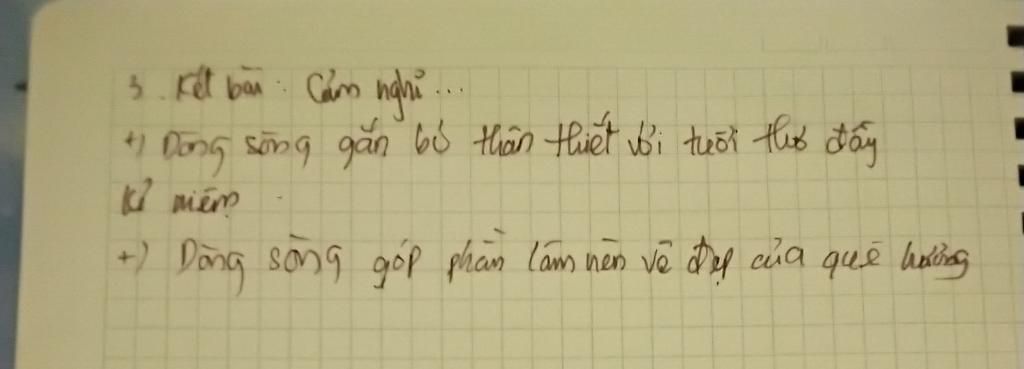 3. Kết bài: Cảm nghĩ...
+) Dòng sông gắn bó thân thiết với tuổi thơ đầy
kỉ niệm.
+) Dòng sông góp phần làm nên vẻ đẹp của quê hương